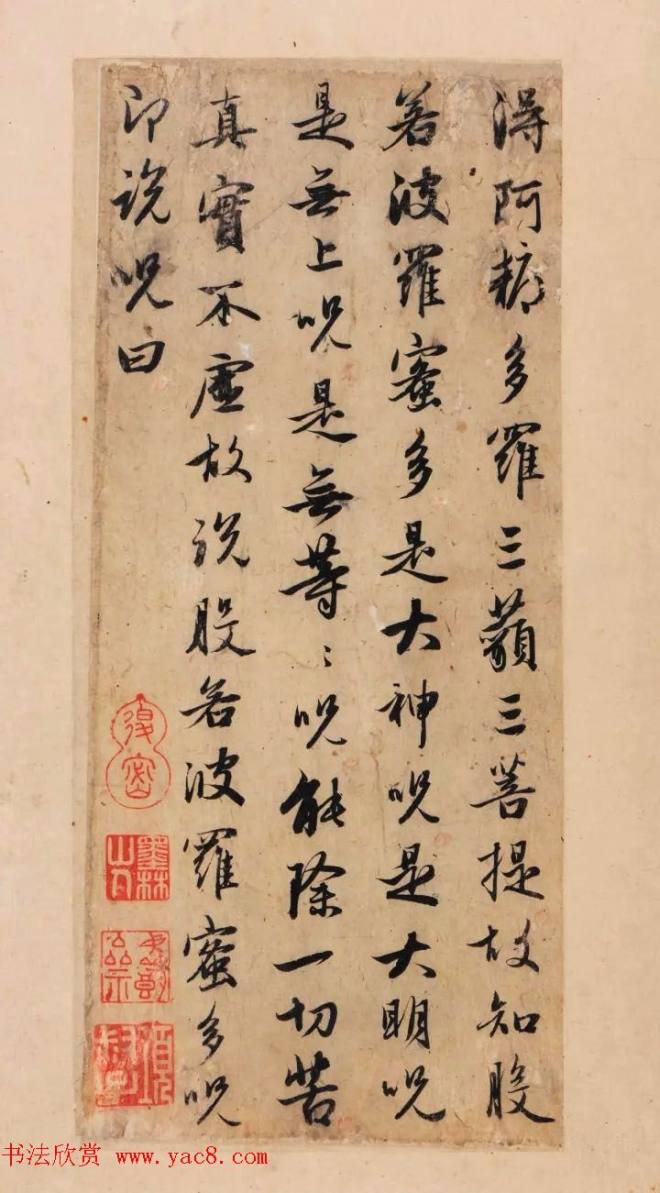 得阿耨多羅三藐三菩提故知般
若波羅蜜多是大神呪是大明呪
是無上呪是無等〻呪能除一切苦
真實不虛故說般若波羅蜜多呪
即說呪曰
墨林
山人
書法欣赏 www.yac8.com